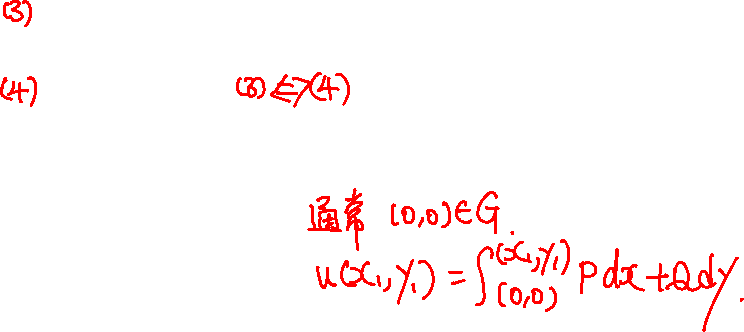 (3)
(4) (3)⇔(4)
通常 (0,0)∈G.
u(x₁,y₁)=∫_{(0,0)}^{(x₁,y₁)} Pdx+Qdy.